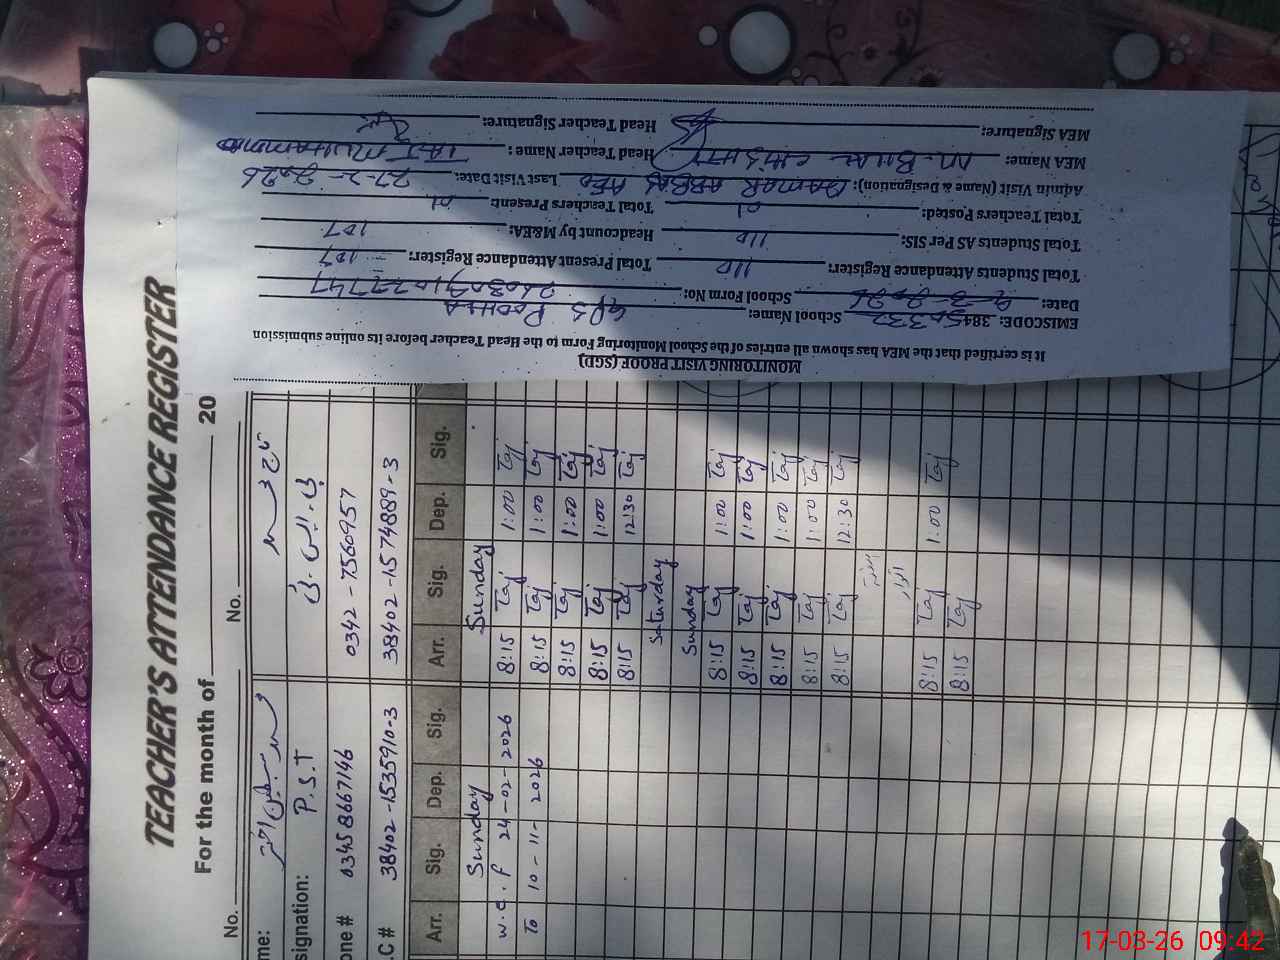 MONITORING VISIT PROOF (SGD)
It is certified that the MEA has shown all entries of the School Monitoring Form to the Head Teacher before its online submission
EMISCODE: 38450332 School Name: GPS POOHLA
Date: 9-3-2026 School Form No:
Total Students Attendance Register: 110 Total Present Attendance Register: 107
Total Students AS Per SIS: 110 Headcount by M&EA: 107
Total Teachers Posted: 01 Total Teachers Present: 01
Admin Visit (Name & Designation): QAMAR ABBAS AEO Last Visit Date: 27-2-2026
MEA Name: M-BILAL CHISHTI Head Teacher Name: TAJ MUHAMMAD
MEA Signature: Head Teacher Signature:
TEACHER'S ATTENDANCE REGISTER
For the month of 20
No. No.
me:
signation: P.S.T
one # 03458667146 0342-7560957
.C # 38402-1535910-3 38402-1574889-3
Arr. Sig. Dep. Sig. Arr. Sig. Dep. Sig.
Sunday Sunday
w.e.f 24-02-2026 8:15 Taj 1:00 Taj
To 10-11-2026 8:15 Taj 1:00 Taj
8:15 Taj 1:00 Taj
8:15 Taj 1:00 Taj
8:15 Taj 12:30 Taj
Saturday
Sunday
8:15 Taj 1:00 Taj
8:15 Taj 1:00 Taj
8:15 Taj 1:00 Taj
8:15 Taj 1:00 Taj
8:15 Taj 12:30 Taj
8:15 Taj 1:00 Taj
8:15 Taj
17-03-26 09:42